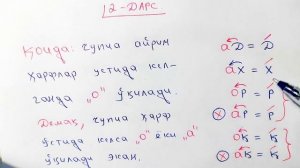 12-ДАРС
Қоида: чупча айрим
ҳарфлар устида кел-
ганда "о" ўқилади.
Демак, чупча ҳарф
устида келса "о" ёки "а"
ўқилади экан.
аD = D
аX = X
оР = Р
аР = Р
оҚ = Қ
аҚ = Қ